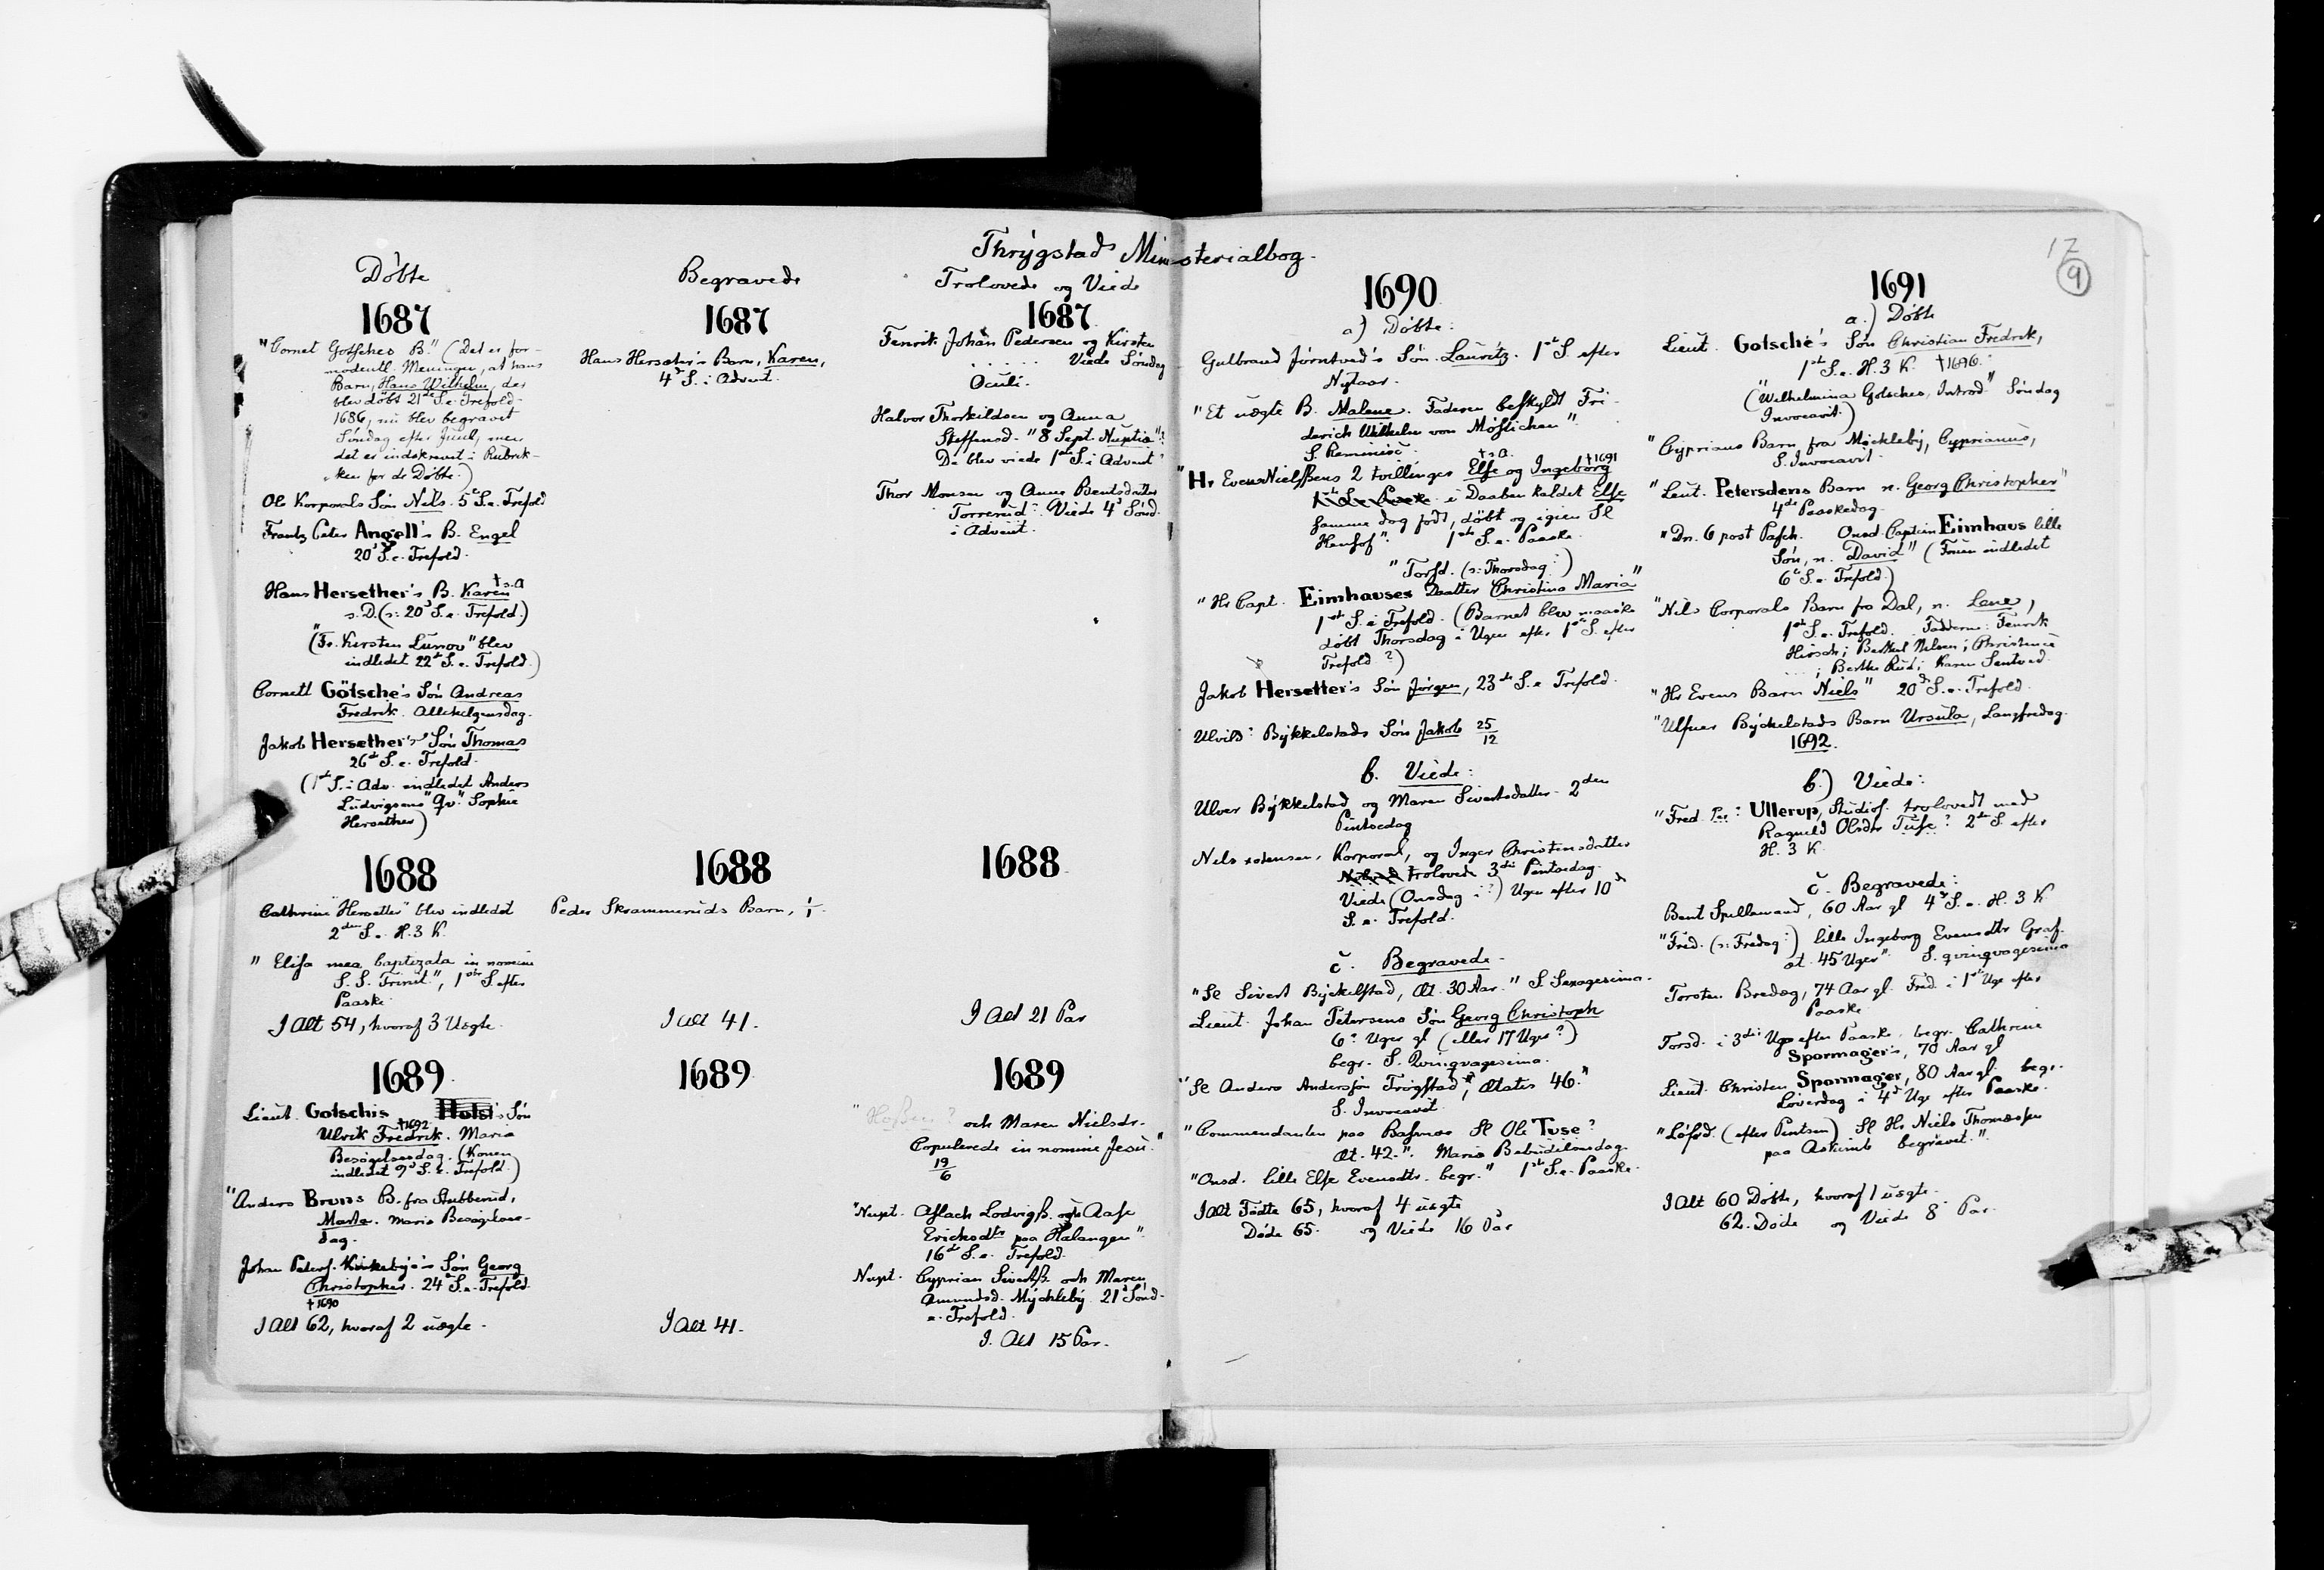 Thrygstads Ministerialbog.
Döbte
1687
"Cornet Gotsches B." (Det er for-
modentl. Meningen, at hans
Barn, Hans Wilhelm, der
blev döbt 21de S. e. Trefold.
1686, nu blev begravet
Söndag efter Juul, men
det er indskrevet i Rubrik-
ken for de Döbte.)
Ole Korporals Sön Nels. 5te S. e. Trefold
Frantz Peter Angell's B. Engel
20d S. e. Trefold.
Hans Hersether's B. Karen † s. a
s. D. (s: 20d S. e. Trefold.)
("Fr. Kirsten Lunov" blev
indledet 22de S. e. Trefold.)
Cornett Götsche's Sön Andreas
Fredrik. Allehelgensdag.
Jakob Hersether's Sön Thomas
26de S. e. Trefold.
(1ste S. i Adv. indledet Anders
Ludvigsens "Qv." Sophie
Hersether)
1688
Cathrine "Hersetter" blev indledet
2den S. e. H. 3 K.
"Elisa mea baptizata in nomine
S. S. Trinit", 1ste S. efter
Paaske.
I Alt 54, hvoraf 3 Uægte.
1689
Lieut. Gotschis Holst's Sön
Ulrik Fredrik. †1692 Maria
Besögelsesdag. (Konen
indledet 9d S. e. Trefold.)
"Anders Bruns B. fra Stubberud,
Marte. Maria Besögelses-
dag.
Johan Peders. Kirkebye's Sön Georg
Christopher. 24d S. e. Trefold.
†1690
I Alt 62, hvoraf 2 uægte.
Begravede
1687
Hans Herseter's Barn, Karen,
4d S. i Advent.
1688
Peder Skrammeruds Barn, 1/1.
I alt 41.
1689
I Alt 41.
Trolovede og Viede
1687
Fenrik Johan Pedersen og Kirsten
. . . . . . Viede Söndag
Oculi.
Halvor Thorkildsen og Anna
Steffensd. "8 Sept. Nuptia"?
De blev viede 1ste S. i Advent
Thor Monsen og Anne Bentsdatter
Torrerud. Viede 4d Sönd.
i Advent.
1688
I Alt 21 Par
1689
och Maren Nielsdr.
Copulerede in nomine Jesu."
19/6
"Nupt. Aslach Lodvigß. och Aase
Ericksdtr paa Halangen".
16de S. e. Trefold.
Nupt. Cyprian Sivertß. och Maren
Amundsd. Myckleby 21d Sönd.
e. Trefold.
I. Alt 15 Par.
1690
a) Döbte:
Gulbrand Jörntved's Sön Lauritz. 1ste S. efter
Nytaar.
"Et uægte B. Malene. Faderen beskyldt Fri-
derich Wilhelm von Möslichen".
S. Reminisc.
"Hr Evens Nielssßens 2 tvillinger Else † s. a. og Ingeborg †1691
1ste S. e. Paaske i Daaben kaldet Else
samme dag födt, döbt og igien Sl
Hensof". 1ste S. e. Paaske.
"Torsd. (s: Thorsdag:)
"Hr Capt. Eimhauses Daatter Christina Maria"
1ste S. e. Trefold. (Barnet blev maaske
döbt Thorsdag i Ugen efter 1ste S. efter
Trefold?)
Jakob Hersetter's Sön Jörgen, 23de S. e Trefold.
Ulvild: Bykkelstads Sön Jakob 25/12
b. Viede:
Ulver Bykkelstad og Maren Sivertsdatter. 2den
Pintsedag
Nels Korporal, og Inger Christensdatter
trolovede 3die Pintsedag.
Viede (Onsdag i?) Ugen efter 10d
S. e. Trefold.
c. Begravede.
"Sl Sivert Byckelstad, Æt. 30 Aar." S. Sexagesima.
Lieut. Johan Petersens Sön Georg Christoph
6? Uger gl (eller 17 Uger?)
begr. S. Qvinqvagesima.
"Sl Anders Andersön Trögstad, Ætatis 46."
S. Invocavit.
"Commendanten paa Basmoe Sl Ole Tuse?
Æt. 42.". Mariæ Bebudelsesdag.
"Onsd. lille Else Evensdtr. begr." 1ste S. e. Paaske.
I Alt Födte 65, hvoraf 4 uægte
Döde 65. og Viede 16 Par
17
9
1691
a.) Döbte
Lieut. Gotsché's Sön Christian Fredrik,
1ste S. e. H. 3 K. †1696.
("Wilhelmina Gotsches, Introd" Söndag
Invocavit.)
"Cyprians Barn fra Möckleby, Cyprianus,
S. Invocavit.
"Leut. Petersdens Barn n. Georg Christopher"
4de Paaskedag.
"Dn. 6 post Pasch. Onsd. Captein Eimhaus lille
Sön, n. David" (Fruen indledet
6te S. e. Trefold.)
"Nils Corporals Barn fra Dal, n. Lene,
1ste S. e. Trefold. Fadderne: Fenrik
Hirsch; Berthel Nelsen; Christence
. . . ; Berthe Rud; Karen Sentved.
"Hr Evens Barn Niels" 20de S. e. Trefold.
"Ulfuer Byckelstads Barn Ursula, Langfredag.
1692.
b.) Viede:
"Fred. Per: Ullerup, Studios. trolovedt med
Ragnild Olsdtr Tuse? 2de S. efter
H. 3 K.
c. Begravede:
Bent Spillemand, 60 Aar gl 4d S. e. H. 3 K
"Fred. (s: Fredag:) lille Ingeborg Evensdtr Graf.
æt. 45 Uger". S. qvinqvagesima
Torsten Bredæg, 74 Aar gl. Fred. i 1ste Uge efter
Paaske
Torsd. i 3die Uge efter Paaske begr. Cathrine
Spormager's, 70 Aar gl
Lieut. Christen Spormager, 80 Aar gl. begr.
Löverdag i 4d Uge efter Paaske.
"Löfrd. (efter Pintsen) Sl Hr Niels Thomæsen
paa Askimb begravet.".
I Alt 60 Döbte, hvoraf 1 uægte.
62. Döde og Viede 8 Par.